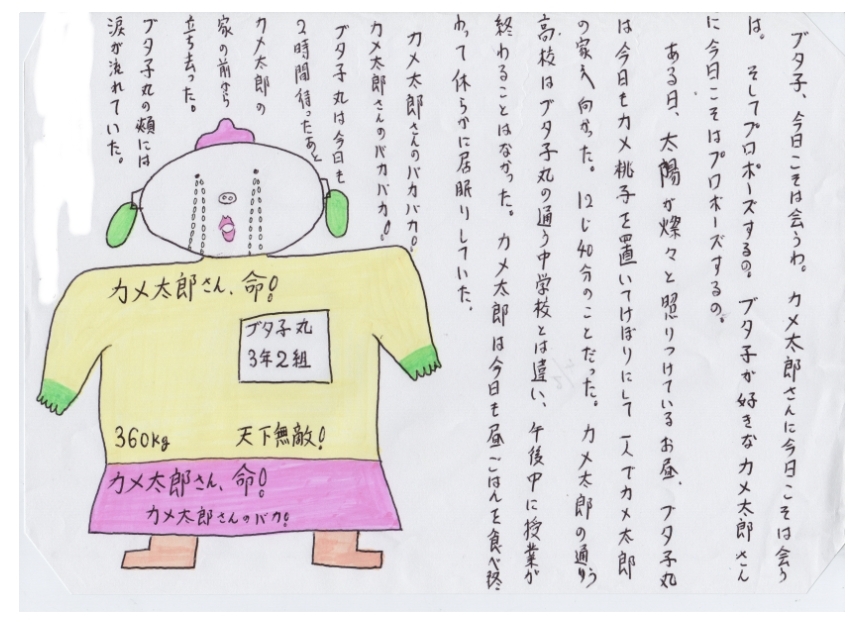 ブタ子、今日こそは会うわ。カメ太郎さんに今日こそは会う
は。そしてプロポーズするの。ブタ子が好きなカメ太郎さん
に今日こそはプロポーズするの。
ある日、太陽が燦々と照りつけているお昼、ブタ子丸
は今日もカメ桃子を置いてけぼりにして一人でカメ太郎
の家へ向かった。12じ40分のことだった。カメ太郎の通う
高校はブタ子丸の通う中学校とは違い、午後中に授業が
終わることはなかった。カメ太郎は今日も昼ごはんを食べ終
わって休らかに居眠りしていた。
カメ太郎さんのバカバカ!
カメ太郎さんのバカバカ!
ブタ子丸は今日も
2時間待ったあと
カメ太郎の
家の前から
立ち去った。
ブタ子丸の頬には
涙が流れていた。
カメ太郎さん、命!
ブタ子丸
3年2組
360kg
天下無敵!
カメ太郎さん、命!
カメ太郎さんのバカ!